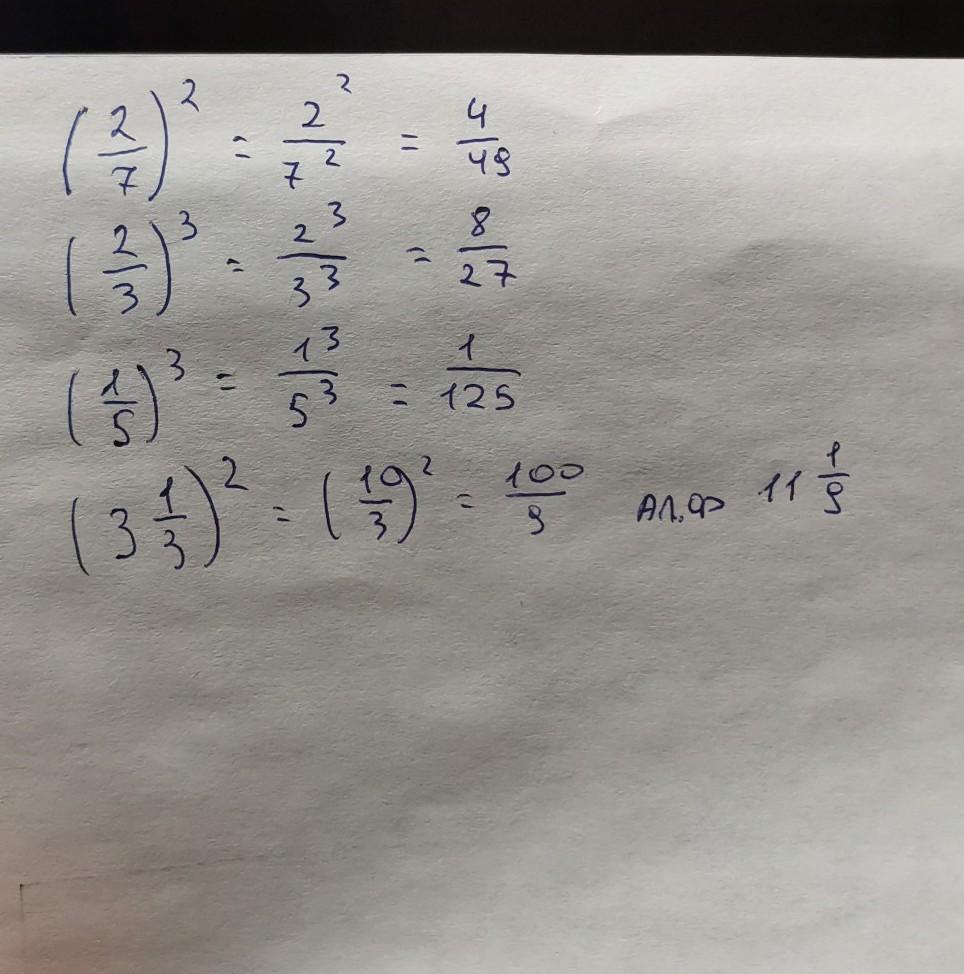 (2/7)² = 2²/7² = 4/49
(2/3)³ = 2³/3³ = 8/27
(1/5)³ = 1³/5³ = 1/125
(3 1/3)² = (10/3)² = 100/9 11 1/9